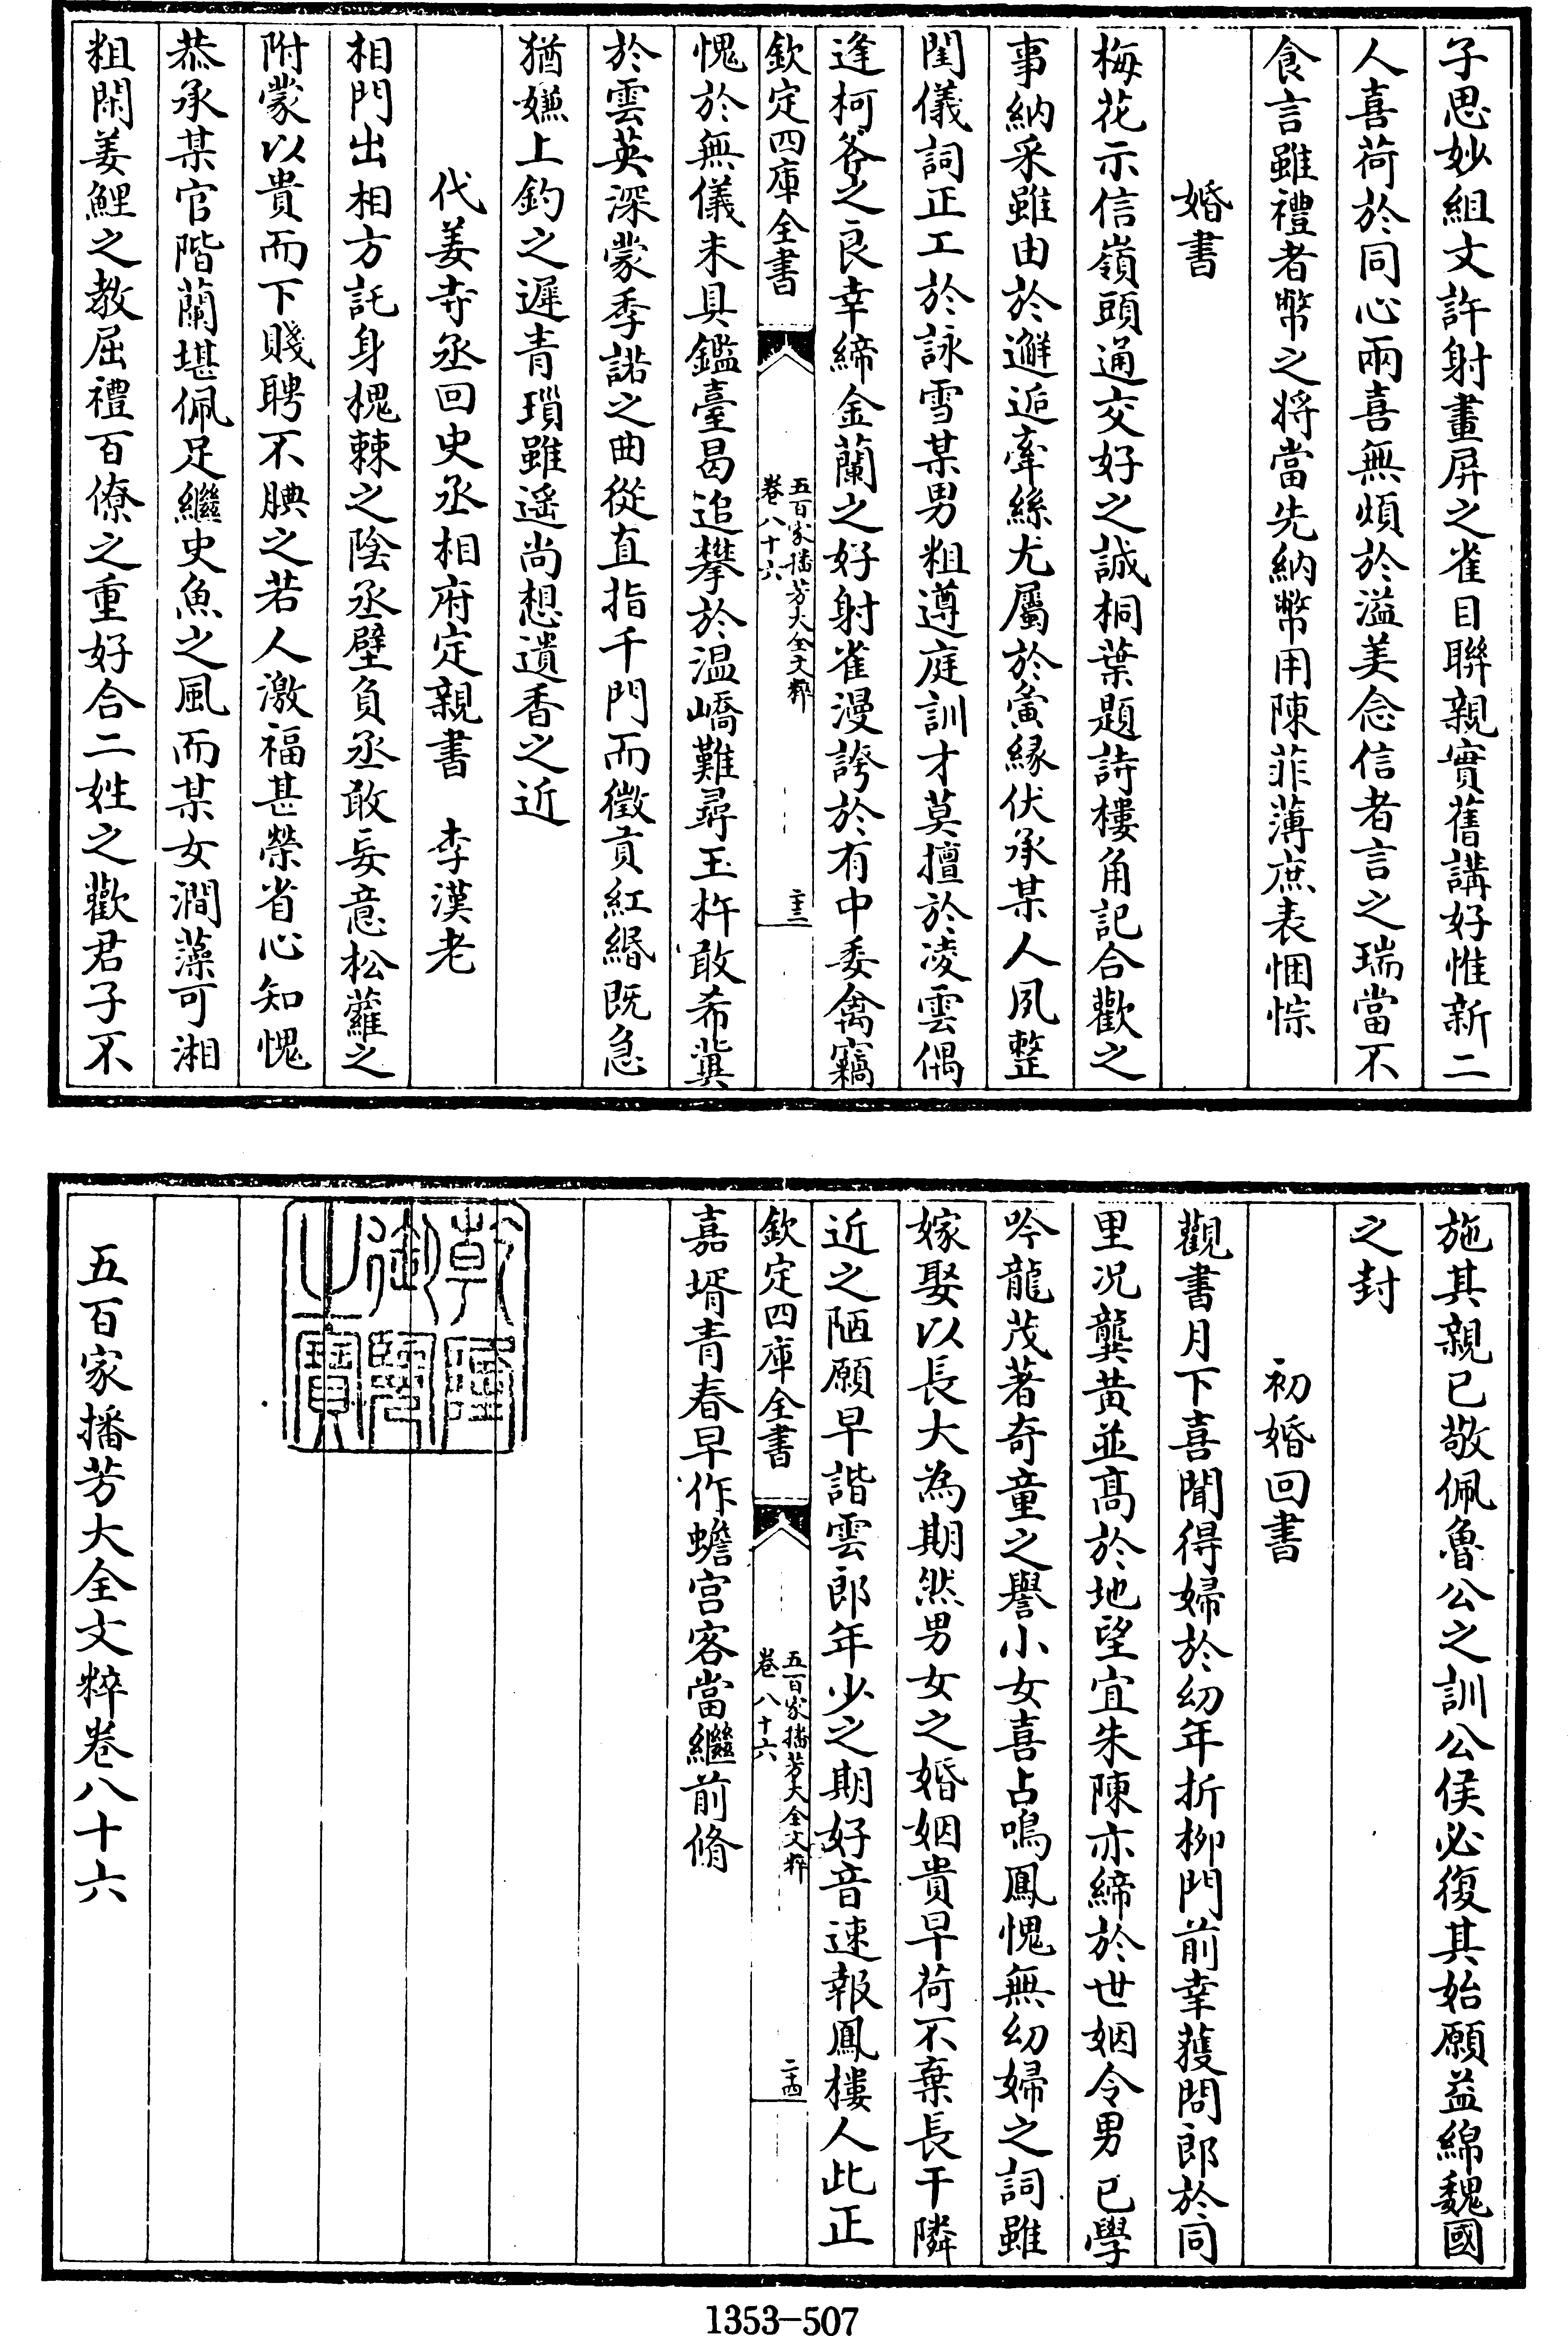 子思妙組文許射畫屏之雀目聯親實舊講好惟新二
人喜荷於同心兩喜無煩於溢美念信者言之瑞當不
食言雖禮者幣之將當先納幣用陳菲薄庶表悃悰
婚書
梅花示信嶺頭通交好之誠桐葉題詩樓角記合歡之
事納采雖由於邂逅牽絲尤屬於夤縁伏承某人夙整
閨儀詞正工於詠雪某男粗遵庭訓才莫擅於凌雲偶
逢柯斧之良幸締金蘭之好射雀漫誇於有中委禽竊
欽定四庫全書
五百家播芳大全文粹
卷八十六
二十三
愧於無儀未具鑑臺曷追攀於温嶠難尋玉杵敢希冀
於雲英深蒙季諾之曲從直指千門而徵貢紅緡既急
猶嫌上釣之遲青瑣雖遥尚想遺香之近
代姜寺丞回史丞相府定親書 李漢老
相門出相方託身槐棘之陰丞壁負丞敢妄意松蘿之
附蒙以貴而下賤聘不腆之若人激福甚榮省心知愧
恭承某官階蘭堪佩足繼史魚之風而某女澗藻可湘
粗閑姜鯉之教屈禮百僚之重好合二姓之歡君子不
施其親已敬佩魯公之訓公侯必復其始願益綿魏國
之封
初婚回書
觀書月下喜聞得婦於幼年折柳門前幸獲問郎於同
里况龔黄並髙於地望宜朱陳亦締於世姻令男已學
吟龍茂著奇童之譽小女喜占鳴鳳愧無幼婦之詞雖
嫁娶以長大為期然男女之婚姻貴早荷不棄長干隣
近之陋願早諧雲郎年少之期好音速報鳳樓人此正
欽定四庫全書
五百家播芳大全文粹
卷八十六
二十四
嘉壻青春早作蟾宫客當繼前脩
乾隆御覽之寶
五百家播芳大全文粹卷八十六
1353-507